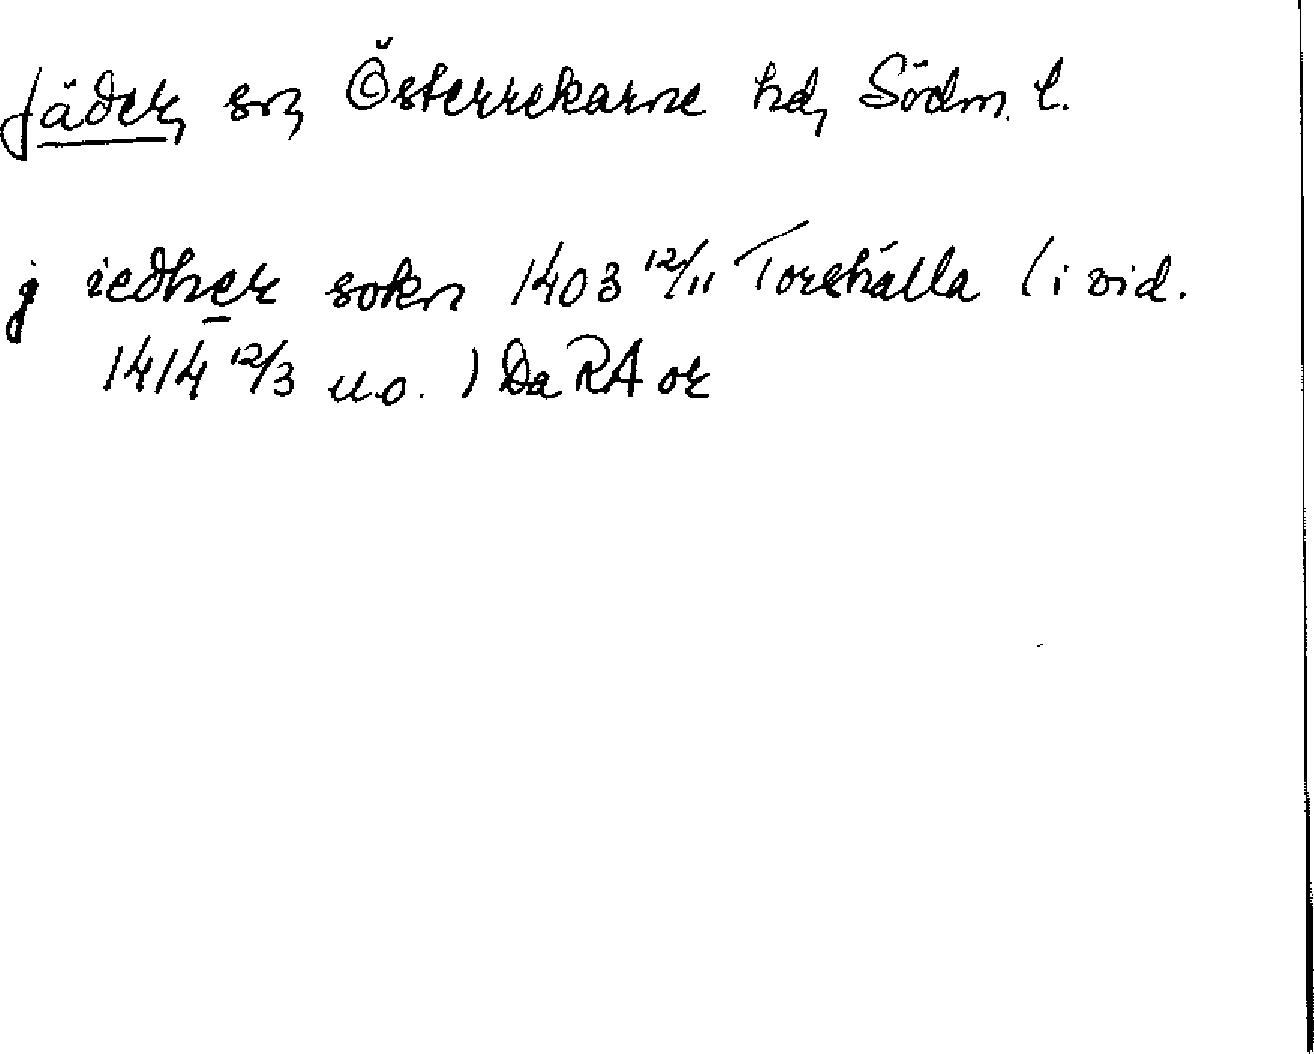 Jäder, sn, Österrekarne hd, Södm. l.
j iedher sokn 1403 12/11 Torshälla (i vid.
1414 12/3 u.o.) Da RA or